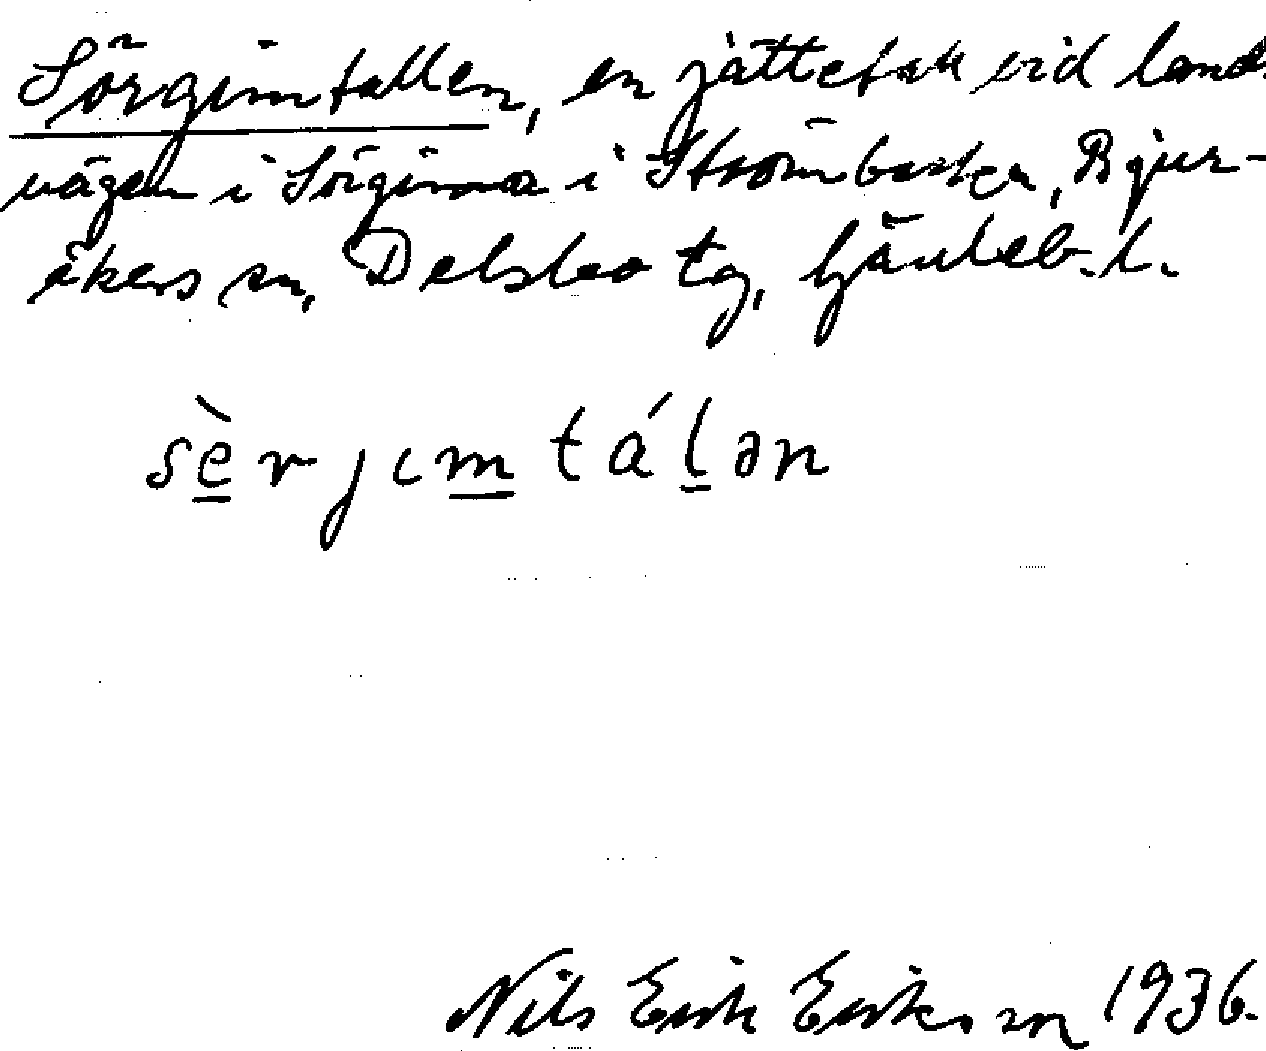 Sörgimtallen, en jättetall vid lands-
vägen i Sörgimma i Strömbacken, Bjur-
åkers sn, Delsbo tg, hjäuleb. l.
sèrjımtálən
Nils Erik Eriksson 1936.